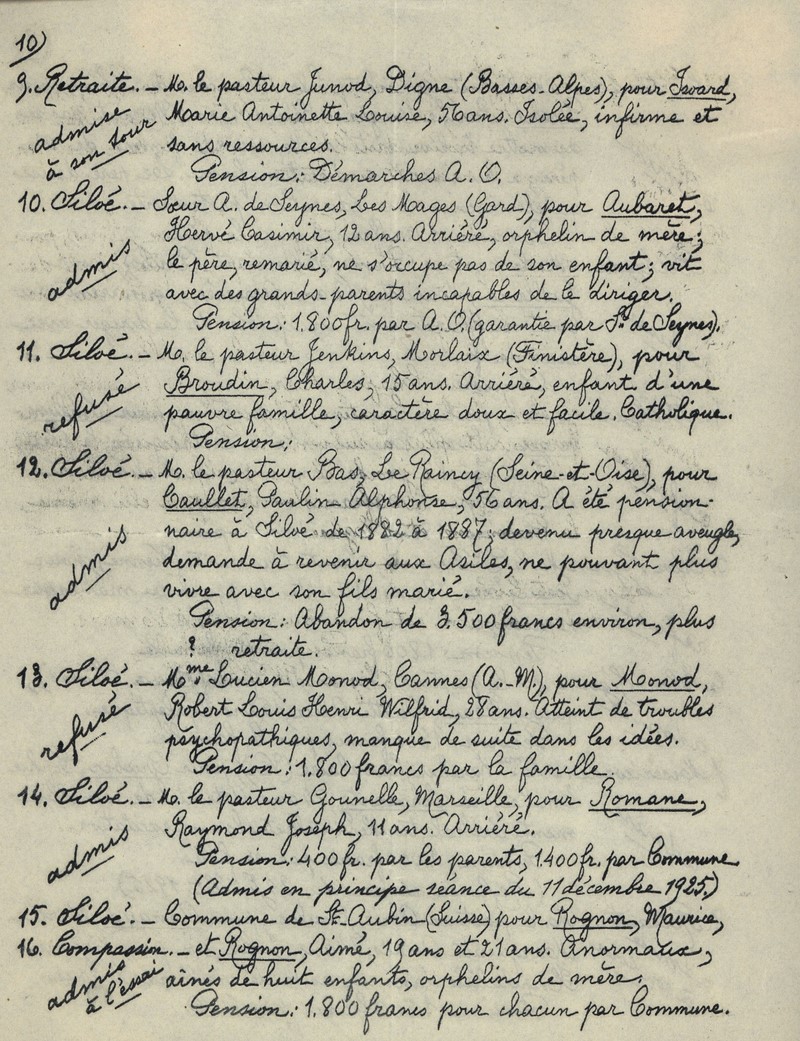 10)
9. Retraite. - M. le pasteur Junod, Digne (Basses-Alpes), pour Isoard,
admise à son tour
Marie Antoinette Louise, 56 ans. Isolée, infirme et
sans ressources.
Pension: Démarches A. O.
10. Siloé. - Sœur A. de Seynes, Les Mages (Gard), pour Aubaret,
admis
Hervé Casimir, 12 ans. Arriéré, orphelin de mère;
le père, remarié, ne s'occupe pas de son enfant; vit
avec des grands-parents incapables de le diriger.
Pension: 1.800 fr. par A. O. (garantie par Sr. de Seynes).
11. Siloé. - M. le pasteur Jenkins, Morlaix (Finistère), pour
refusé
Broudin, Charles, 15 ans. Arriéré, enfant d'une
pauvre famille, caractère doux et facile. Catholique.
Pension:
12. Siloé. - M. le pasteur Bas, Le Raincy (Seine-et-Oise), pour
admis
Caullet, Paulin Alphonse, 56 ans. A été pension-
naire à Siloé de 1882 à 1887; devenu presque aveugle,
demande à revenir aux Asiles, ne pouvant plus
vivre avec son fils marié.
Pension: Abandon de 3.500 francs environ, plus
? retraite.
13. Siloé. - Mme. Lucien Monod, Cannes (A.-M.), pour Monod,
refusé
Robert Louis Henri Wilfrid, 28 ans. Atteint de troubles
psychopathiques, manque de suite dans les idées.
Pension: 1.800 francs par la famille.
14. Siloé. - M. le pasteur Gounelle, Marseille, pour Romane,
admis
Raymond Joseph, 11 ans. Arriéré.
Pension: 400 fr. par les parents, 1.400 fr. par Commune.
(Admis en principe séance du 11 décembre 1925.)
15. Siloé. - Commune de St-Aubin (Suisse) pour Rognon, Maurice,
16. Compassion. - et Rognon, Aimé, 19 ans et 21 ans. Anormaux,
admis à l'essai
aînés de huit enfants, orphelins de mère.
Pension: 1.800 francs pour chacun par Commune.